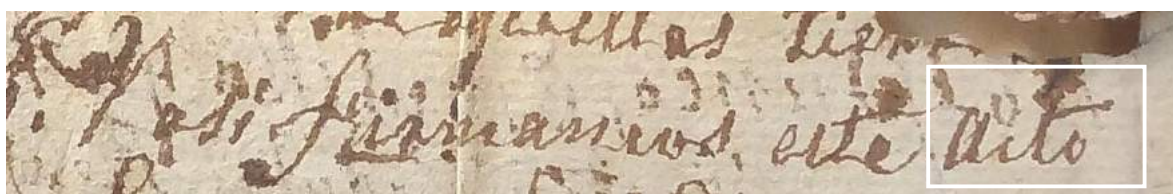 aquellas tier
Y asi firmamos este Auto